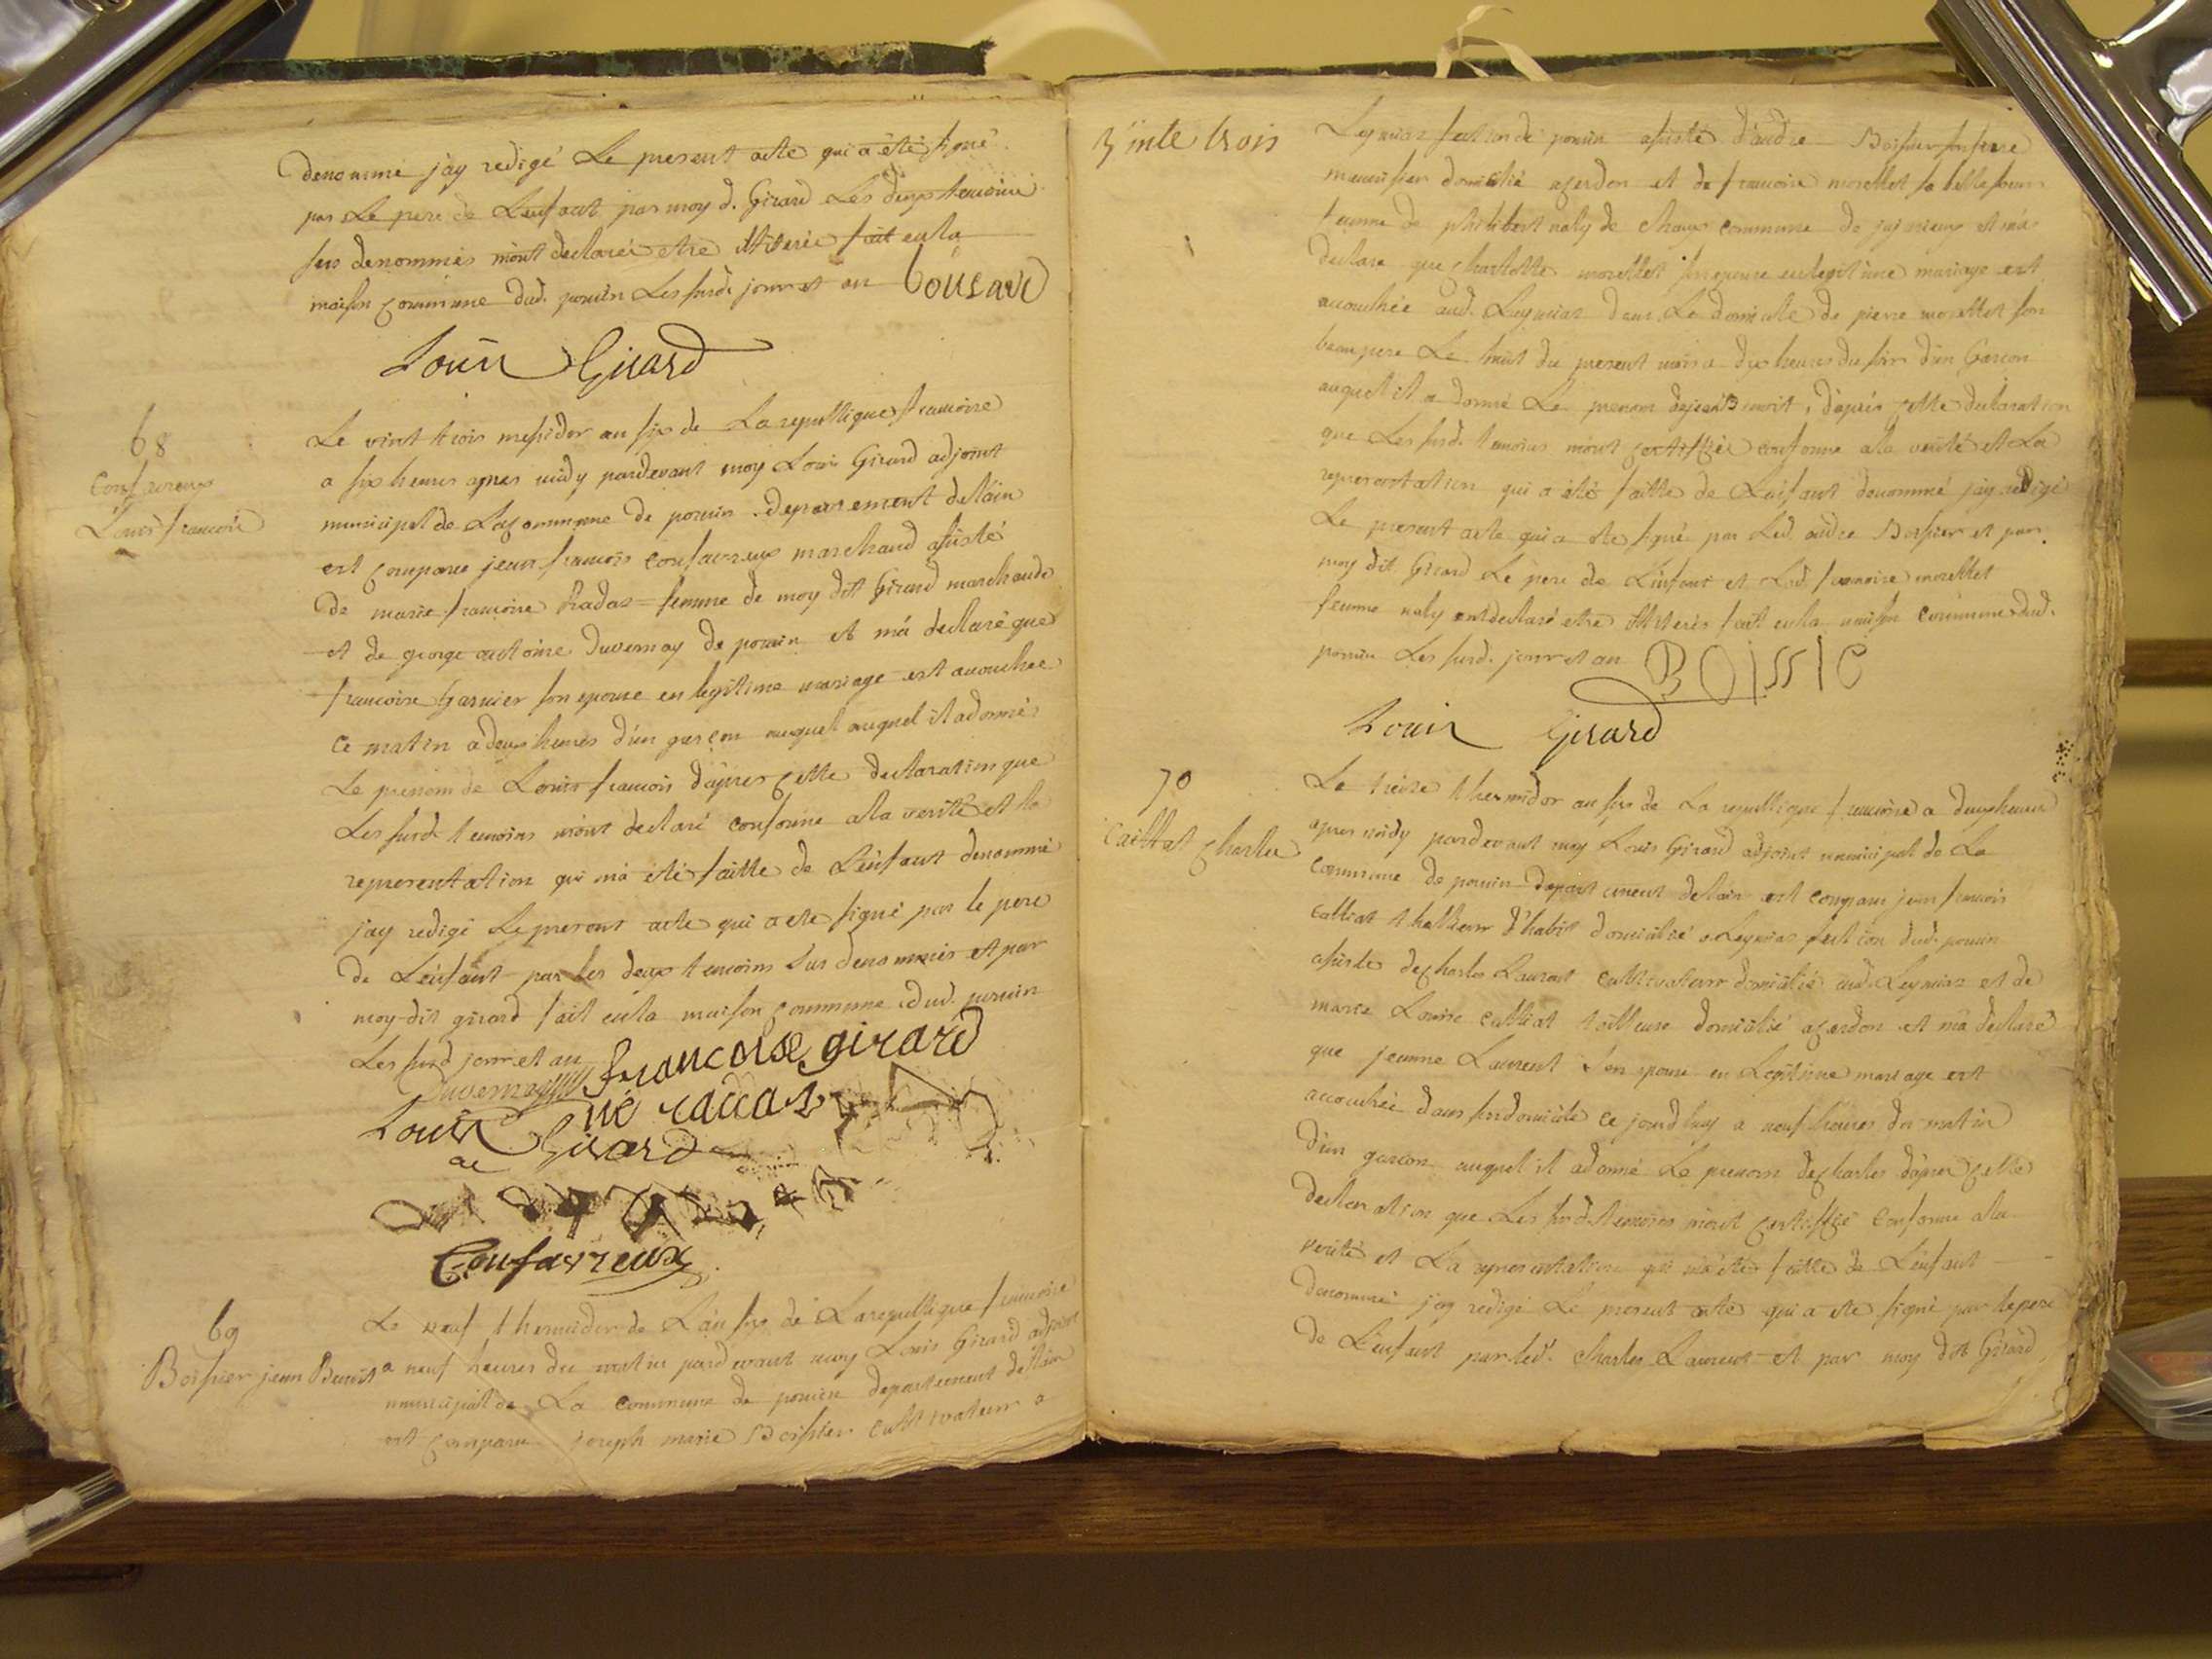 denommé j'ay redigé Le present acte qui a été signé
par Le pere de L'enfant par moy d. Girard Les deux temoins
sus denommés m'ont declarés etre illiterés fait en la
maison commune dud. poncin Les susd. jour et an bousard
Louis Girard
68
Confavreux
Louis francois
Le vint trois messidor an six de La republique francoise
a six heures apres midy pardevant moy Louis Girard adjoint
municipal de La commune de poncin departement de l'ain
est comparu jean francois confavreux marchand assisté
de marie francoise Radaz femme de moy dit Girard marchande
et de george antoine Duvernay de poncin et m'a declaré que
francoise Garnier son epouse en legitime mariage est accouchée
ce matin a deux heures d'un garcon auquel auquel il a donné
Le prenom de Louis francois d'apres cette declaration que
Les susd. temoins m'ont declaré conforme a la verité et la
representation qui m'a été faitte de L'enfant denommé
j'ay redigé Le present acte qui a ete signé par le pere
de L'enfant par les deux temoins sus denommés et par
moy dit girard fait en la maison commune dud. poncin
Les susd jour et an francoise girard
Duvernay né radaz
Louis Girard
Confavreux
69
Boissier jean Benoit
Le neuf thermidor de L'an six de La republique francoise
a neuf heures du matin pardevant moy Louis Girard adjoint
municipal de La commune de poncin departement de l'ain
est comparu joseph marie Boissier cultivateur a
trinte trois
Leymiaz section de poncin assisté d'andre Boissier son frere
menuisier domicilié a cerdon et de francoise morellet sa belle soeur
femme de philibert naly de Chaux commune de jujurieux et m'a
declare que charlotte morellet son epouse en legitime mariage est
accouchée aud. Leymiaz dans Le domicile de pierre morellet son
beau pere Le huit du present mois a dix heures du soir d'un Garcon
auquel il a donné Le prenom de jean Benoit, d'apres cette declaration
que Les susd. temoins m'ont certiffié conforme a la verité et La
representation qui a été faitte de L'enfant denommé j'ay redigé
Le present acte qui a ete signé par Led. andre Boissier et par
moy dit Girard Le pere de L'enfant et Lad. francoise morellet
femme naly ont declaré etre illiterés fait en la maison commune dud.
poncin Les susd. jour et an BOISSIE
Louis Girard
70
Caillat Charles
Le treize thermidor an six de La republique francoise a deux heures
apres midy pardevant moy Louis Girard adjoint municipal de La
commune de poncin departement de l'ain est comparu jean francois
calliat tallieur d'habit domicilié a Leymiaz section dud. poncin
assisté de charles Laurent cultivateur domicilié aud. Leymiaz et de
marie Louise calliat tallieuse domicilié a cerdon et m'a declaré
que jeanne Laurent son epouse en Legitime mariage est
accouchée dans son domicile ce jourd'huy a neuf heures du matin
d'un garcon auquel il a donné Le prenom de charles d'apres cette
declaration que Les susd. temoins m'ont certiffié conforme a la
verité et La representation qui m'a été faitte de L'enfant
denommé j'ay redigé Le present acte qui a ete signé par le pere
de L'enfant par led. charles Laurent et par moy dit Girard